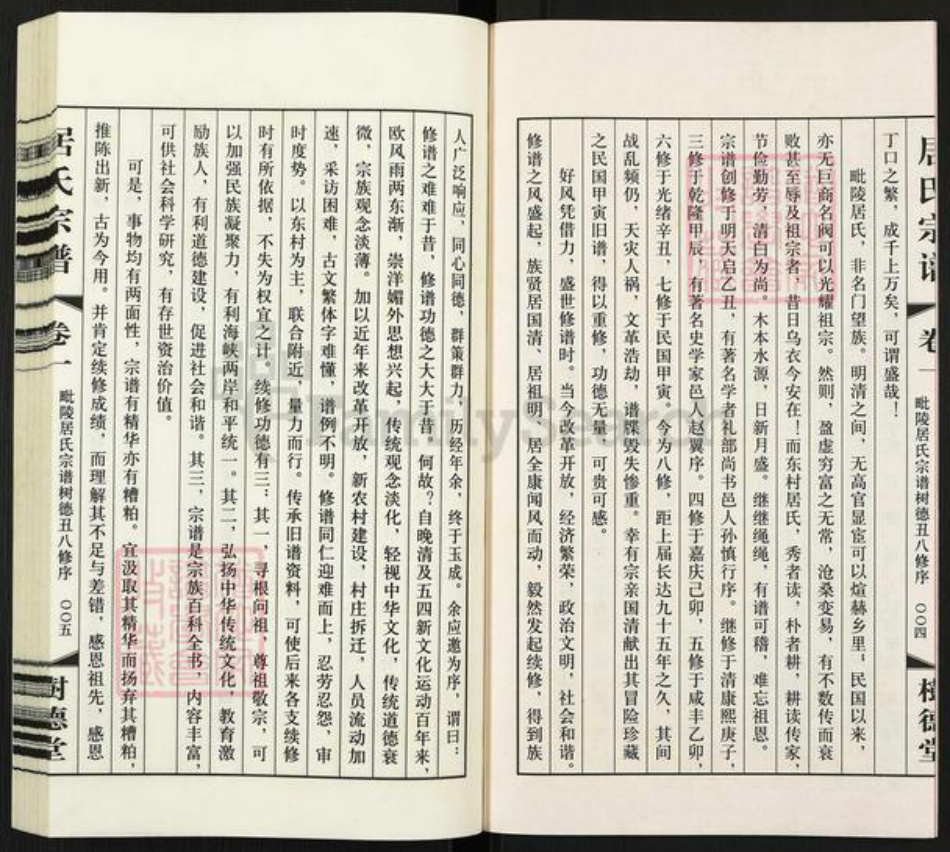 居氏宗谱
卷一
毗陵居氏宗谱树德丑八修序
〇〇四
樹德堂
丁口之繁，成千上万矣，可谓盛哉！
毗陵居氏，非名门望族。明清之间，无高官显宦可以煊赫乡里；民国以来，
亦无巨商名阀可以光耀祖宗。然则，盈虚穷富之无常，沧桑变易，有不数传而衰
败甚至辱及祖宗者，昔日乌衣今安在！而东村居氏，秀者读，朴者耕，耕读传家，
节俭勤劳，清白为尚。木本水源，日新月盛。继继绳绳，有谱可稽，难忘祖恩。
宗谱创修于明天启乙丑，有著名学者礼部尚书邑人孙慎行序。继修于清康熙庚子，
三修于乾隆甲辰，有著名史学家邑人赵翼序。四修于嘉庆己卯，五修于咸丰乙卯，
六修于光绪辛丑，七修于民国甲寅。今为八修，距上届长达九十五年之久，其间
战乱频仍，天灾人祸，文革浩劫，谱牒毁失惨重。幸有宗亲国清献出其冒险珍藏
之民国甲寅旧谱，得以重修，功德无量，可贵可感。
好风凭借力，盛世修谱时。当今改革开放，经济繁荣，政治文明，社会和谐。
修谱之风盛起，族贤居国清、居祖明、居全康闻风而动，毅然发起续修，得到族
人广泛响应，同心同德，群策群力，历经年余，终于玉成。余应邀为序，谓曰：
修谱之难难于昔，修谱功德之大大于昔，何故？自晚清及五四新文化运动百年来，
欧风雨两东渐，崇洋媚外思想兴起，传统观念淡化，轻视中华文化，传统道德衰
微，宗族观念淡薄。加以近年来改革开放，新农村建设，村庄拆迁，人员流动加
速，采访困难，古文繁体字难懂，谱例不明。修谱同仁迎难而上，忍劳忍怨，审
时度势。以东村为主，联合附近，量力而行。传承旧谱资料，可使后来各支续修
时有所依据，不失为权宜之计。续修功德有三：其一，寻根问祖，尊祖敬宗，可
以加强民族凝聚力，有利海峡两岸和平统一。其二，弘扬中华传统文化，教育激
励族人，有利道德建设，促进社会和谐。其三，宗谱是宗族百科全书，内容丰富，
可供社会科学研究，有存世资治价值。
可是，事物均有两面性，宗谱有精华亦有糟粕。宜汲取其精华而扬弃其糟粕，
推陈出新，古为今用。并肯定续修成绩，而理解其不足与差错，感恩祖先，感恩
居氏宗谱
卷一
毗陵居氏宗谱树德丑八修序
〇〇五
樹德堂
FamilySearch